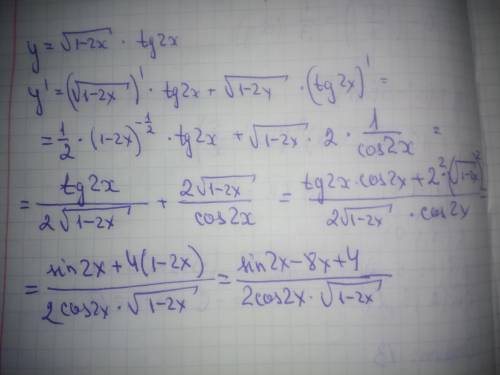 y = √(1-2x) · tg2x
y' = (√(1-2x))' · tg2x + √(1-2x) · (tg2x)' =
= 1/2 · (1-2x)^(-1/2) · tg2x + √(1-2x) · 2 · 1/cos2x =
= tg2x/(2√(1-2x)) + 2√(1-2x)/cos2x = (tg2x · cos2x + 2² · (√(1-2x))²)/(2√(1-2x) · cos2x) =
= (sin2x + 4(1-2x))/(2cos2x · √(1-2x)) = (sin2x - 8x + 4)/(2cos2x · √(1-2x))